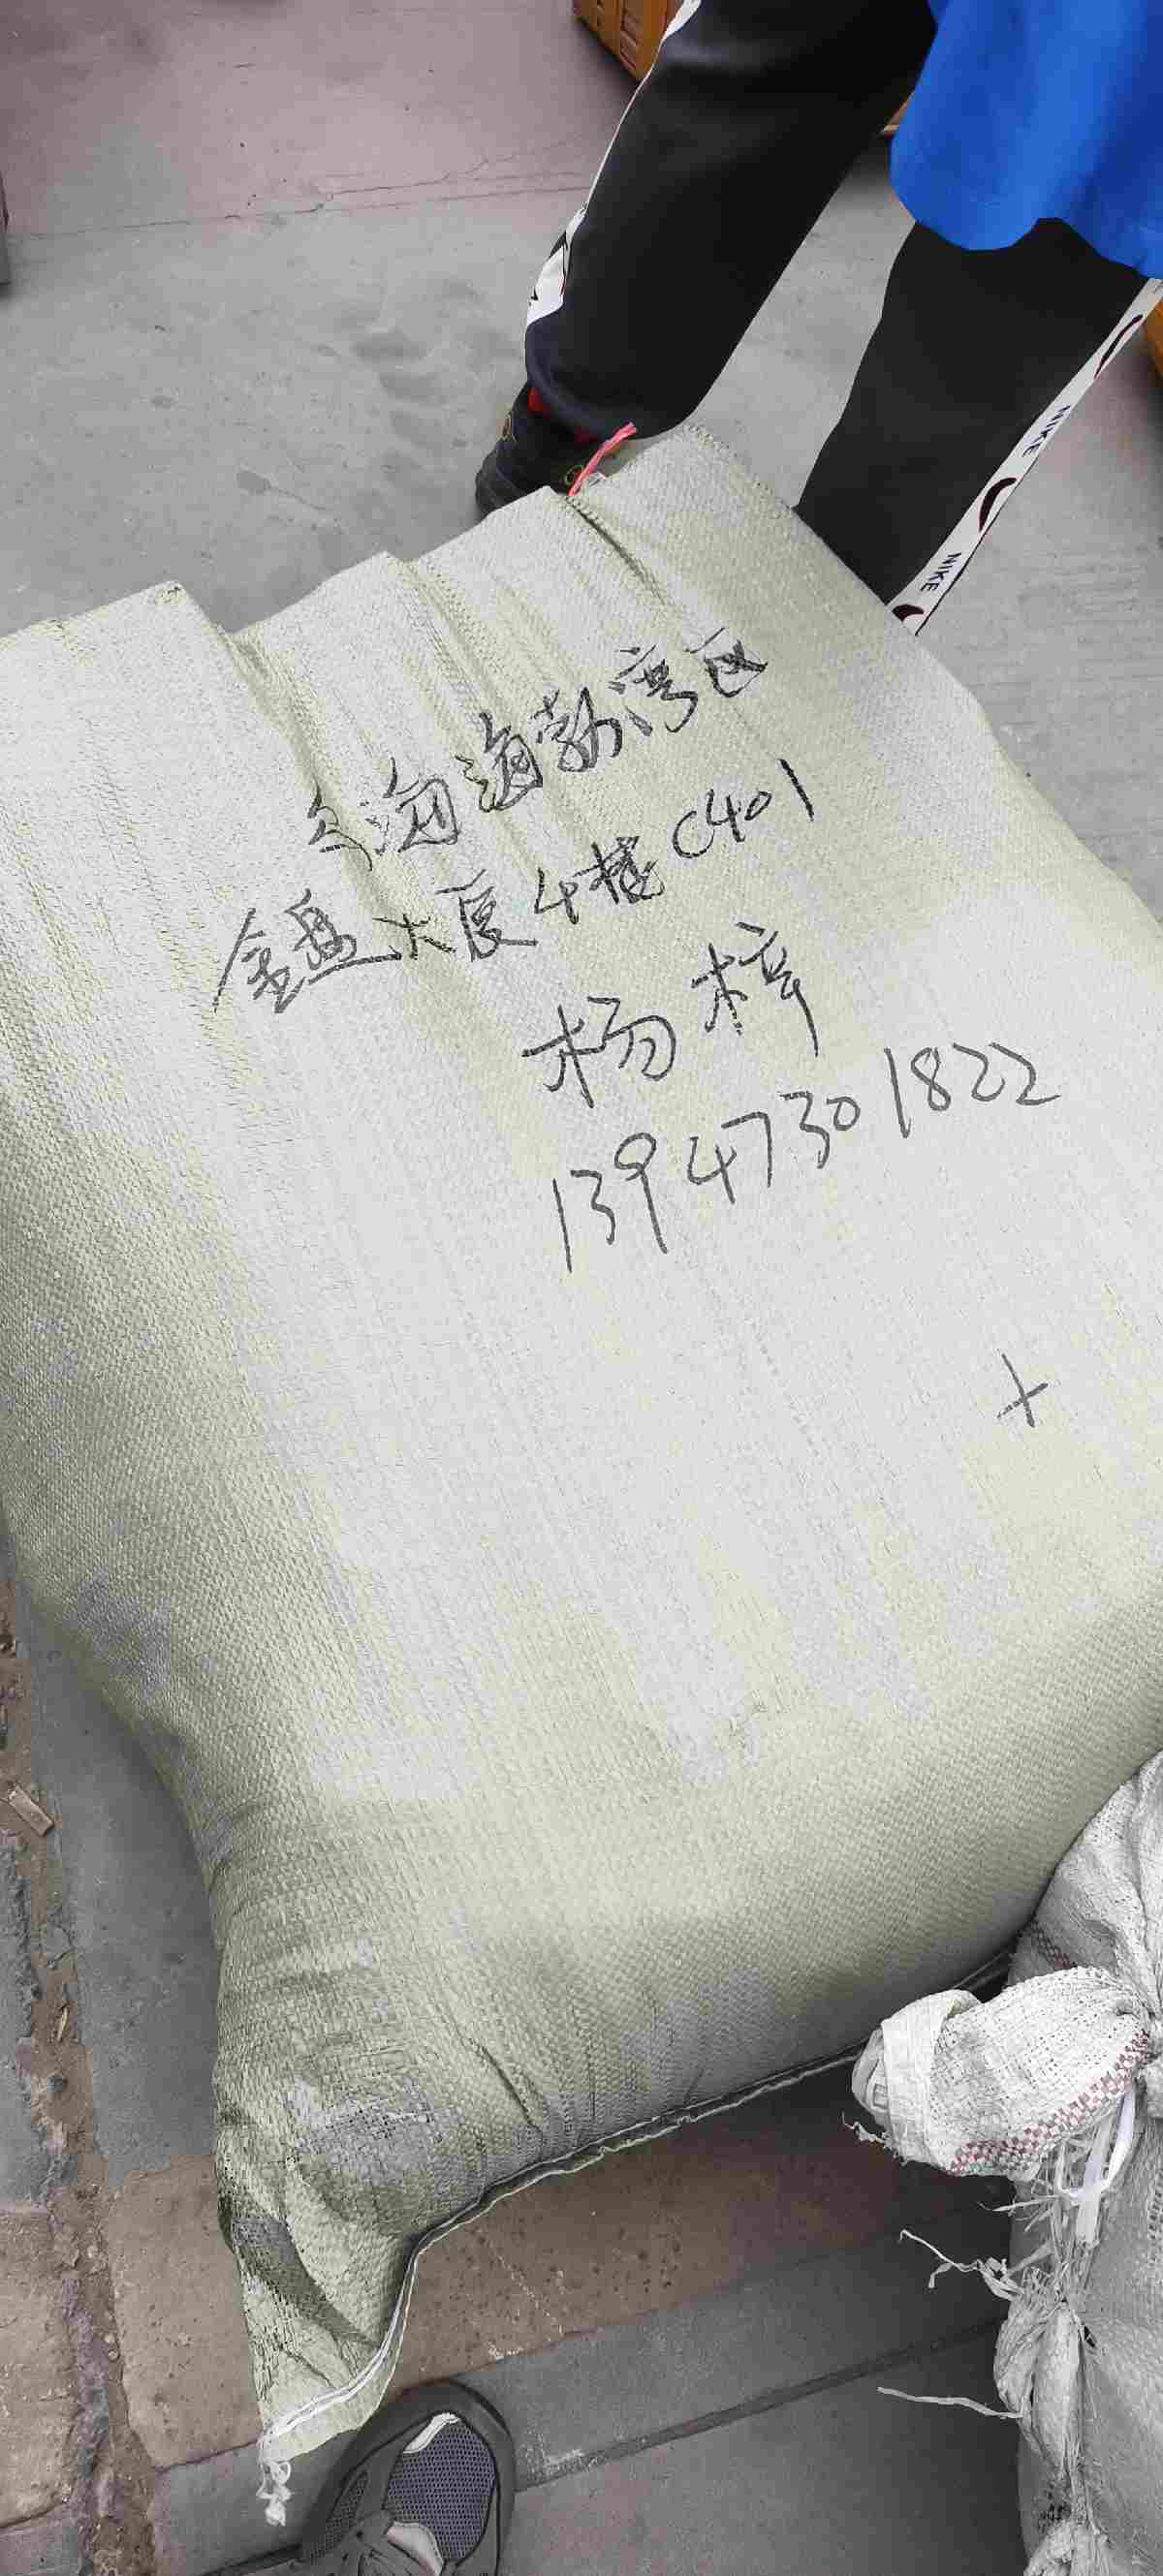 NIKE
NIKE
乌海海勃湾区
金盘大厦4楼C401
杨梓
13947301822